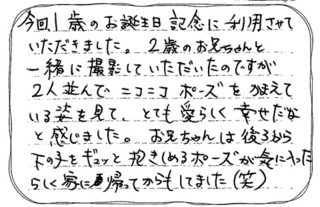 今回1歳のお誕生日記念に利用させて
いただきました。2歳のお兄ちゃんと
一緒に撮影していただいたのですが
2人並んでニコニコポーズをかまえて
いる姿を見て、とても愛らしく幸せだな
と感じました。お兄ちゃんは後ろから
下の子をギュッと抱きしめるポーズが気に入った
らしく家に帰ってからもしてました(笑)